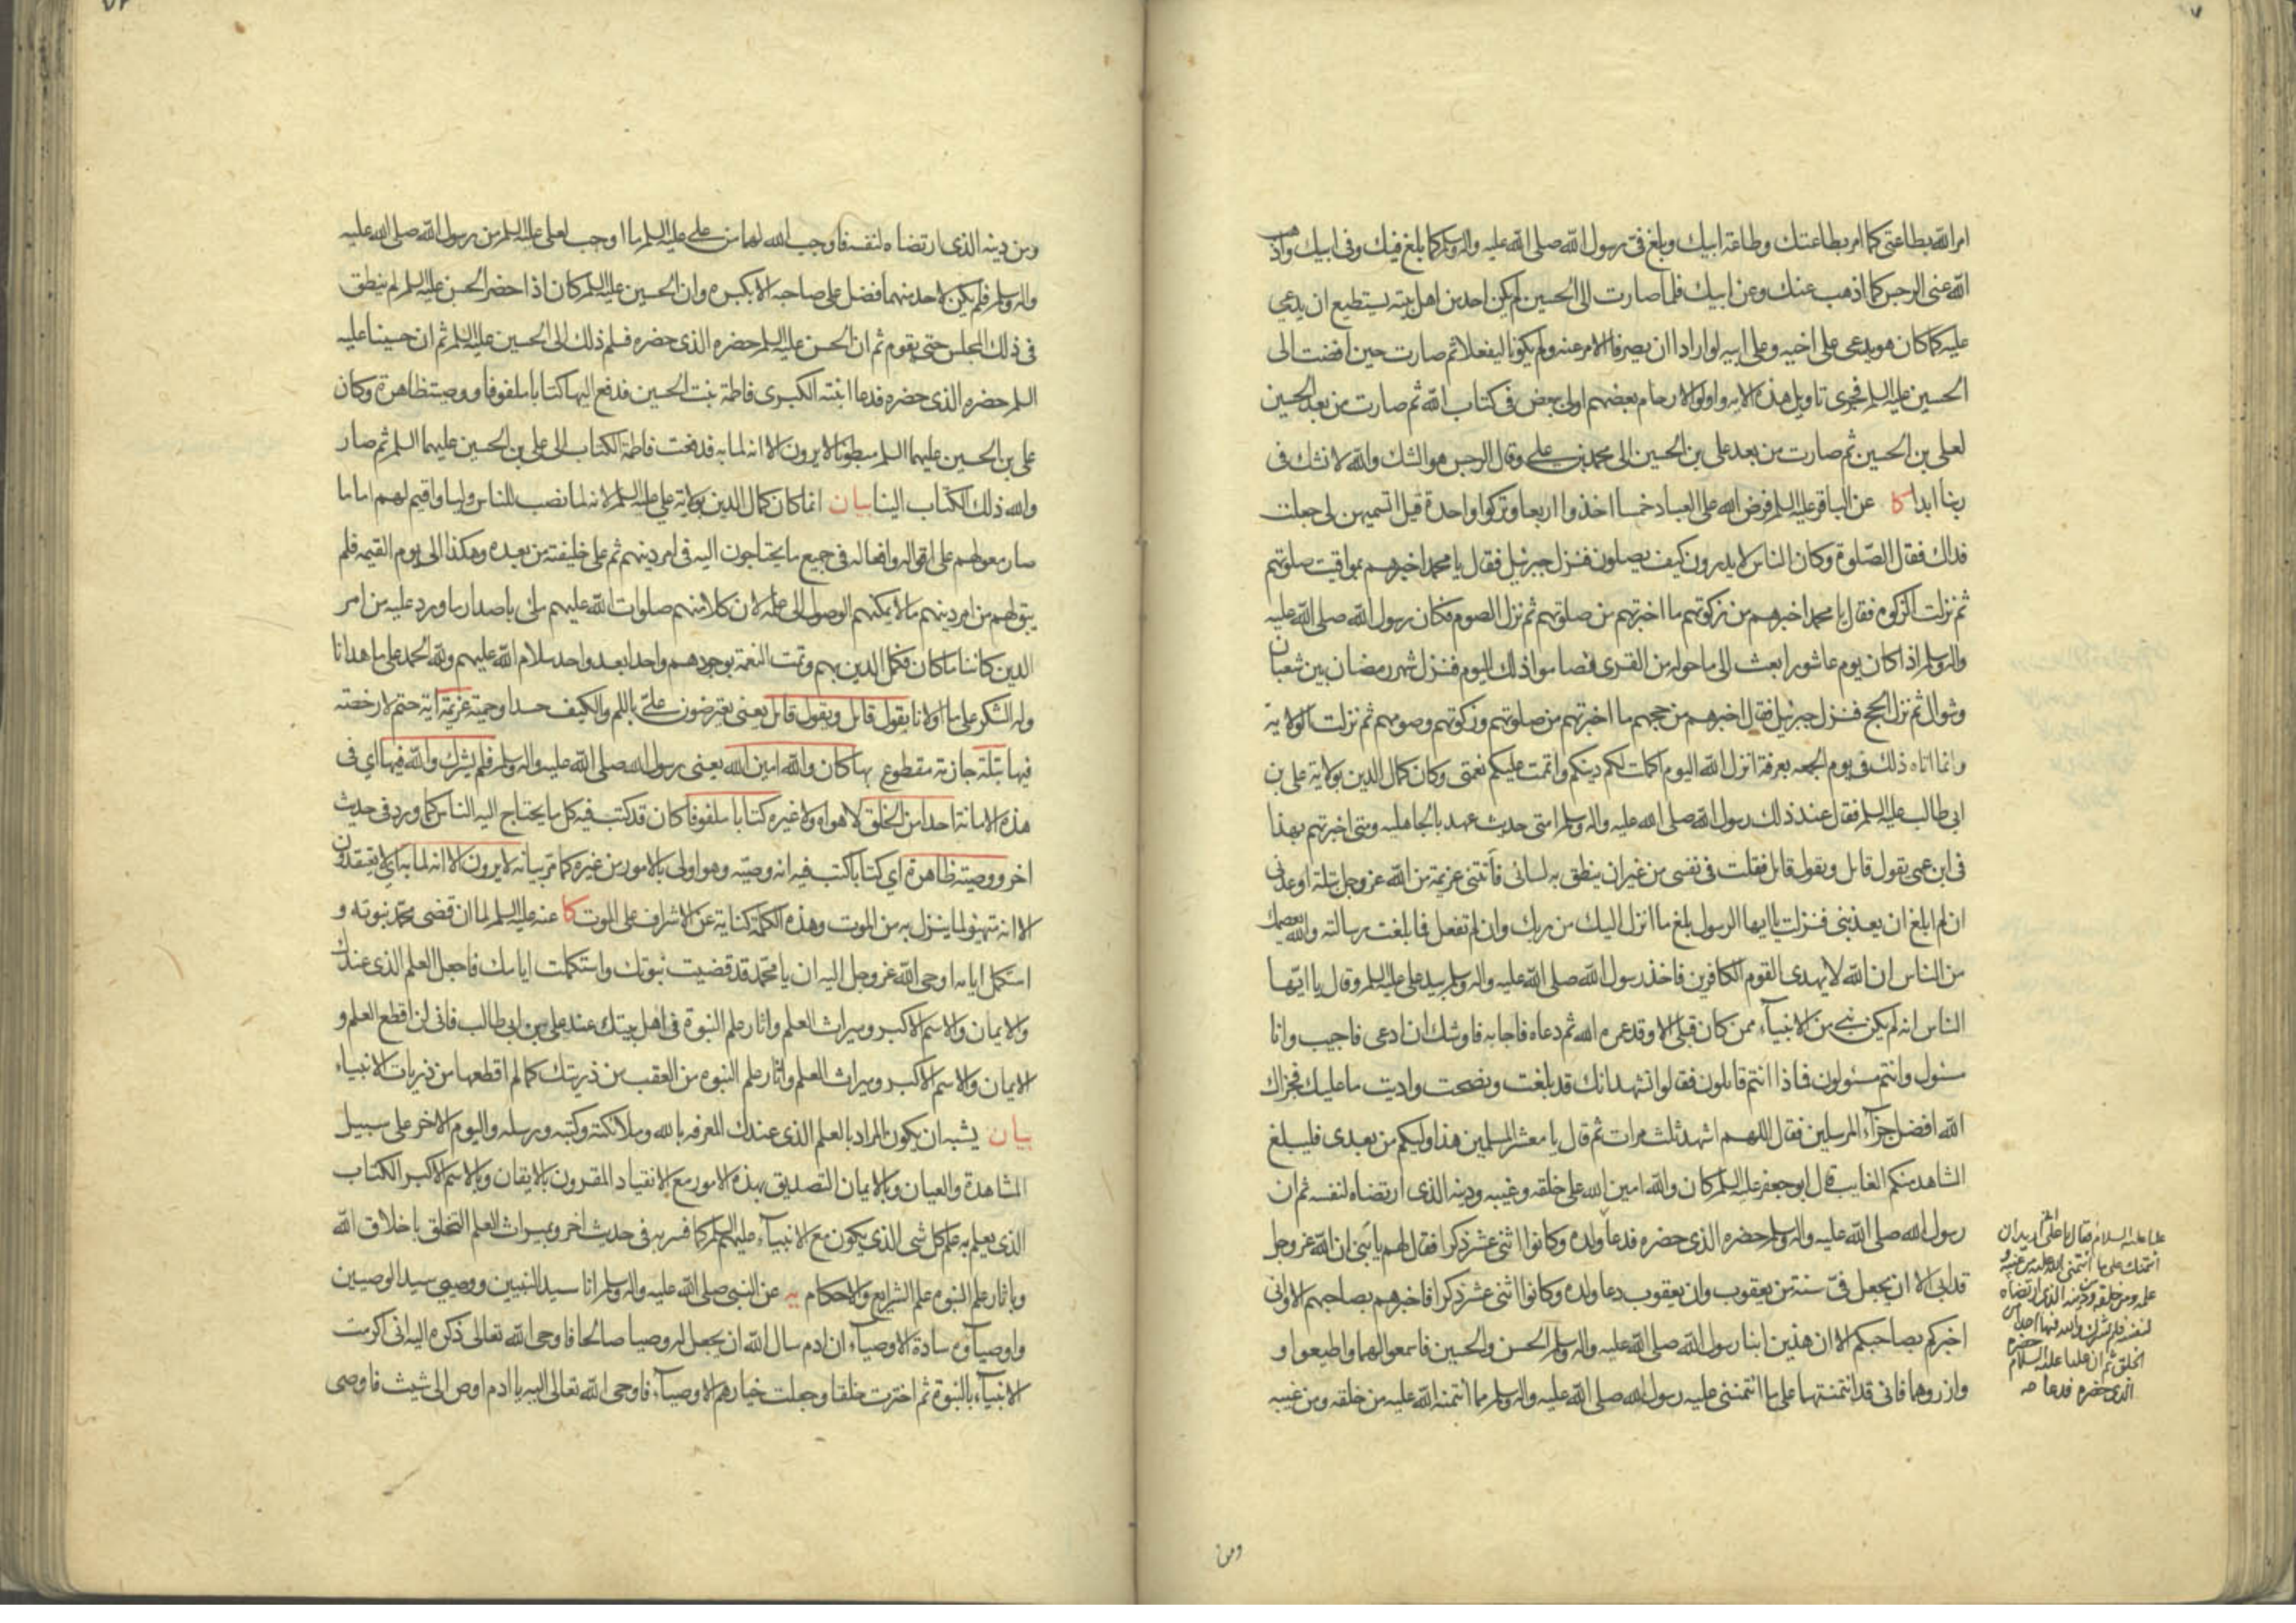 امر الله بطاعتى كما امر بطاعتك وطاعة ابيك وبلغ فىّ رسول الله صلى الله عليه واله وسلم كما بلغ فيك وفى ابيك واذهب
الله عنى الرجس كما اذهب عنك وعن ابيك فلما صارت الى الحسين لم يكن احد من اهل بيته يستطيع ان يدعى
عليه كما كان هو يدعى على اخيه وعلى ابيه لو ارادا ان يصرفا الامر عنه ولم يكونا ليفعلا ثم صارت حين افضت الى
الحسين عليه السلم فجرى تاويل هذه الايه واولوا الارحام بعضهم اولى ببعض فى كتاب الله ثم صارت من بعد الحسين
لعلى بن الحسين ثم صارت من بعد على بن الحسين الى محمد بن على وقال الرجس هو الشك والله لا نشك فى
ربنا ابدا كا عن الباقر عليه السلم فرض الله على العباد خمسا اخذوا اربعا وتركوا واحدة قيل اتسميهن لى جعلت
فداك فقال الصّلوة وكان الناس لا يدرون كيف يصلون فنزل جبرئيل فقال يا محمد اخبرهم بمواقيت صلوتهم
ثم نزلت الزكوه فقال يا محمد اخبرهم من زكوتهم ما اخبرتهم من صلوتهم ثم نزل الصوم فكان رسول الله صلى الله عليه
واله وسلم اذا كان يوم عاشورا بعث الى ما حوله من القرى فصاموا ذلك اليوم فنزل شهر رمضان بين شعبان
وشوال ثم نزل الحج فنزل جبرئيل فقال اخبرهم من حجهم ما اخبرتهم من صلوتهم وزكوتهم وصومهم ثم نزلت الولاية
وانما اتاه ذلك فى يوم الجمعه بعرفة انزل الله اليوم اكملت لكم دينكم واتممت عليكم نعمتى وكان كمال الدين بولاية على بن
ابى طالب عليه السلم فقال عند ذلك رسول الله صلى الله عليه واله وسلم امتى حديث عهد بالجاهليه ومتى اخبرتهم بهذا
فى ابن عمى يقول قائل ويقول قائل فقلت فى نفسى من غير ان ينطق به لسانى فاتتنى عزيمة من الله عز وجل بتلة اوعدنى
ان لم ابلغ ان يعذبنى فنزلت يا ايها الرسول بلغ ما انزل اليك من ربك وان لم تفعل فما بلغت رسالته والله يعصمك
من الناس ان الله لا يهدى القوم الكافرين فاخذ رسول الله صلى الله عليه واله وسلم بيد على عليه السلم وقال يا ايّها
الناس انه لم يكن نبى من الانبياء ممن كان قبلى الا وقد عمره الله ثم دعاه فاجابه فاوشك ان ادعى فاجيب وانا
مسئول وانتم مسئولون فماذا انتم قائلون فقالوا نشهد انك قد بلغت ونصحت واديت ما عليك فجزاك
الله افضل جزاء المرسلين فقال اللهم اشهد ثلث مرات ثم قال يا معشر المسلمين هذا وليكم من بعدى فليبلغ
الشاهد منكم الغايب قال ابو جعفر عليه السلم كان والله امين الله على خلقه وغيبه ودينه الذى ارتضاه لنفسه ثم ان
رسول الله صلى الله عليه واله وسلم حضره الذى حضره فدعا ولده وكانوا اثنى عشر ذكرا فقال لهم يا بنى ان الله عز وجل
قد ابى الا ان يجعل فىّ سنة من يعقوب وان يعقوب دعا ولده وكانوا اثنى عشر ذكرا فاخبرهم بصاحبهم الا وانى
اخبركم بصاحبكم الا ان هذين ابنا رسول الله صلى الله عليه واله وسلم الحسن والحسين فاسمعوا لهما واطيعوا و
وازروهما فانى قد ائتمنتهما على ما ائتمننى عليه رسول الله صلى الله عليه واله وسلم مما ائتمنه الله عليه من خلقه ومن غيبه
عليا عليه السلام فقال يا على انى اريد ان
ائتمنك على ما ائتمننى الله عليه من غيبه و
علمه ومن خلقه ودينه الذى ارتضاه
لنفسه فلم يشرك والله فيها احدا من
الخلق ثم ان عليا عليه السلام حضره
الذى حضره فدعا صح
ومن
ومن دينه الذى ارتضاه لنفسه فاوجب الله لهما من على عليه السلم ما اوجب لعلى عليه السلم من رسول الله صلى الله عليه
واله وسلم فلم يكن لاحد منهما فضل على صاحبه الا بكبره وان الحسين عليه السلم كان اذا حضر الحسن عليه السلم لم ينطق
فى ذلك المجلس حتى يقوم ثم ان الحسن عليه السلم حضره الذى حضره فسلم ذلك الى الحسين عليه السلم ثم ان حسينا عليه
السلم حضره الذى حضره فدعا ابنته الكبرى فاطمة بنت الحسين فدفع اليها كتابا ملفوفا ووصية ظاهرة وكان
على بن الحسين عليهما السلم مبطونا لا يرون الا انه لما به فدفعت فاطمة الكتاب الى على بن الحسين عليهما السلم ثم صار
والله ذلك الكتاب الينا بيان انما كان كمال الدين بولاية على عليه السلم لانه لما نصب للناس وليا واقيم لهم اماما
صار معولهم على اقواله وافعاله فى جميع ما يحتاجون اليه فى امر دينهم ثم على خليفته من بعده وهكذا الى يوم القيمه فلم
يبق لهم من امر دينهم ما لا يمكنهم الوصول الى علمه لان كلا منهم صلوات الله عليهم ملى باصدار ما ورد عليه من امر
الدين كائنا ما كان فكمل الدين بهم وتمت النعمة بوجودهم واحدا بعد واحد سلام الله عليهم ولله الحمد على ما هدانا
وله الشكر على ما اولانا يقول قائل ويقول قائل يعنى يعترضون علىّ باللم والكيف حسدا وحمية عزيمة اية حتم لا رخصته
فيها بتلة جازمة مقطوع بها كان والله امين الله يعنى رسول الله صلى الله عليه واله وسلم فلم يشرك والله فيها اى فى
هذه الامانة احدا من الخلق لا هواه ولا غيره كتابا ملفوفا كان قد كتب فيه كل ما يحتاج اليه الناس كما ورد فى حديث
اخر ووصية ظاهرة اى كتابا كتب فيه انه وصيّه وهو اولى بالامور من غيره كما مر بيانه لا يرون الا انه لما به اى لا يعتقدون
الا انه متهيؤ لما ينزل به من الموت وهذه الكلمة كناية عن الاشراف على الموت كا عنه عليه السلم لما ان قضى محمد نبوته و
استكمل ايامه اوحى الله عز وجل اليه ان يا محمّد قد قضيت نبوتك واستكملت ايامك فاجعل العلم الذى عندك
والايمان والاسم الاكبر وميراث العلم واثار علم النبوة فى اهل بيتك عند على بن ابى طالب فانى لن اقطع العلم و
الايمان والاسم الاكبر وميراث العلم واثار علم النبوه من العقب من ذريتك كما لم اقطعها من ذريات الانبياء
بيان يشبه ان يكون المراد بالعلم الذى عندك المعرفه بالله وملائكته وكتبه ورسله واليوم الاخر على سبيل
المشاهدة والعيان وبالايمان التصديق بهذه الامور مع الانقياد المقرون بالايقان وبالاسم الاكبر الكتاب
الذى يعلم به علم كل شى الذى يكون مع الانبياء عليهم السلم كما فسر به فى حديث اخر وبميراث العلم التخلق باخلاق الله
وباثار علم النبوه علم الشرايع والاحكام يه عن النبى صلى الله عليه واله وسلم انا سيد النبيين ووصيى سيد الوصيين
واوصياؤه سادة الاوصياء ان ادم سال الله ان يجعل له وصيا صالحا فاوحى الله تعالى ذكره اليه انى اكرمت
الانبياء بالنبوة ثم اخترت خلقا وجعلت خيارهم الاوصياء فاوحى الله تعالى اليه يا ادم اوص الى شيث فاوصى